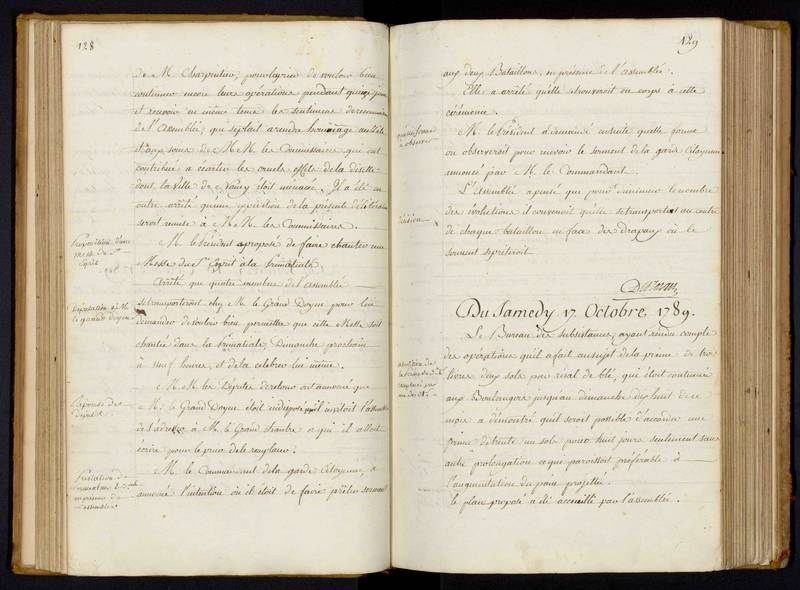 128
de M. Charpentier, pour la prier de vouloir bien
continuer encore leurs opérations pendant quinze jours
et recevoir en même tems les sentimens de reconnois
de l'Assemblée, qui se plait a rendre hommage au zèle
et aux soins de M.M. les Commissaires qui ont
contribué a écarter les cruels effets de la disette
dont la ville de Nancy étoit menacée. Il a été en
outre arrêté qu'une expédition de la présente délibération
seroit remise à M.M. les Commissaires.
Proposition d'une
Messe du St
Esprit
M. le Président a proposé de faire chanter une
Messe du St Esprit a la Primatiale
Arrêté que quatre membres de l'assemblée
Députation à M.
le grand Doyen
se transporteront chez M. le Grand Doyen pour lui
demander de vouloir bien permettre que cette Messe soit
chantée dans la Primatiale, Dimanche prochain
à neuf heures, et de la celebrer lui même.
Réponse des
députés
M.M. les Députés de retour ont annoncé que
M. le Grand Doyen étoit indisposé, qu'il invitoit l'assemblée
de s'adresser à M. le Grand Chantre a qui il alloit
écrire pour le prier de le remplacer.
M. le Commandant de la garde Citoyenne, a
annoncé l'intention où il étoit de faire prêter serment
129
aux deux Bataillons, en présence de l'assemblée.
Elle a arrêté qu'elle se trouveroit en corps à cette
cérémonie.
à observer
M. le Président a demandé ensuite quelle forme
on observeroit pour recevoir le serment de la garde Citoyenne
annoncé par M. le Commandant.
L'Assemblée a pensé que pour diminuer le nombre
Décision
des évolutions il convenoit qu'elle se transportat au centre
de chaque bataillon en face des drapeaux où le
serment se prêteroit.
Du Samedy 17. Octobre, 1789.
Le Bureau des subsistances, ayant rendu compte
des opérations qu'il a fait au sujet de la prime de trois
livres deux sols par résal de blé, qui étoit continuée
aux Boulangers jusqu'au dimanche dix huit de ce
mois a démontré qu'il seroit possible d'accorder une
prime de trente un sols pour huit jours seulement sans
autre prolongation ce qui paroissoit préférable à
l'augmentation du pain projettée.
Le plan proposé a été accueilli par l'assemblée.